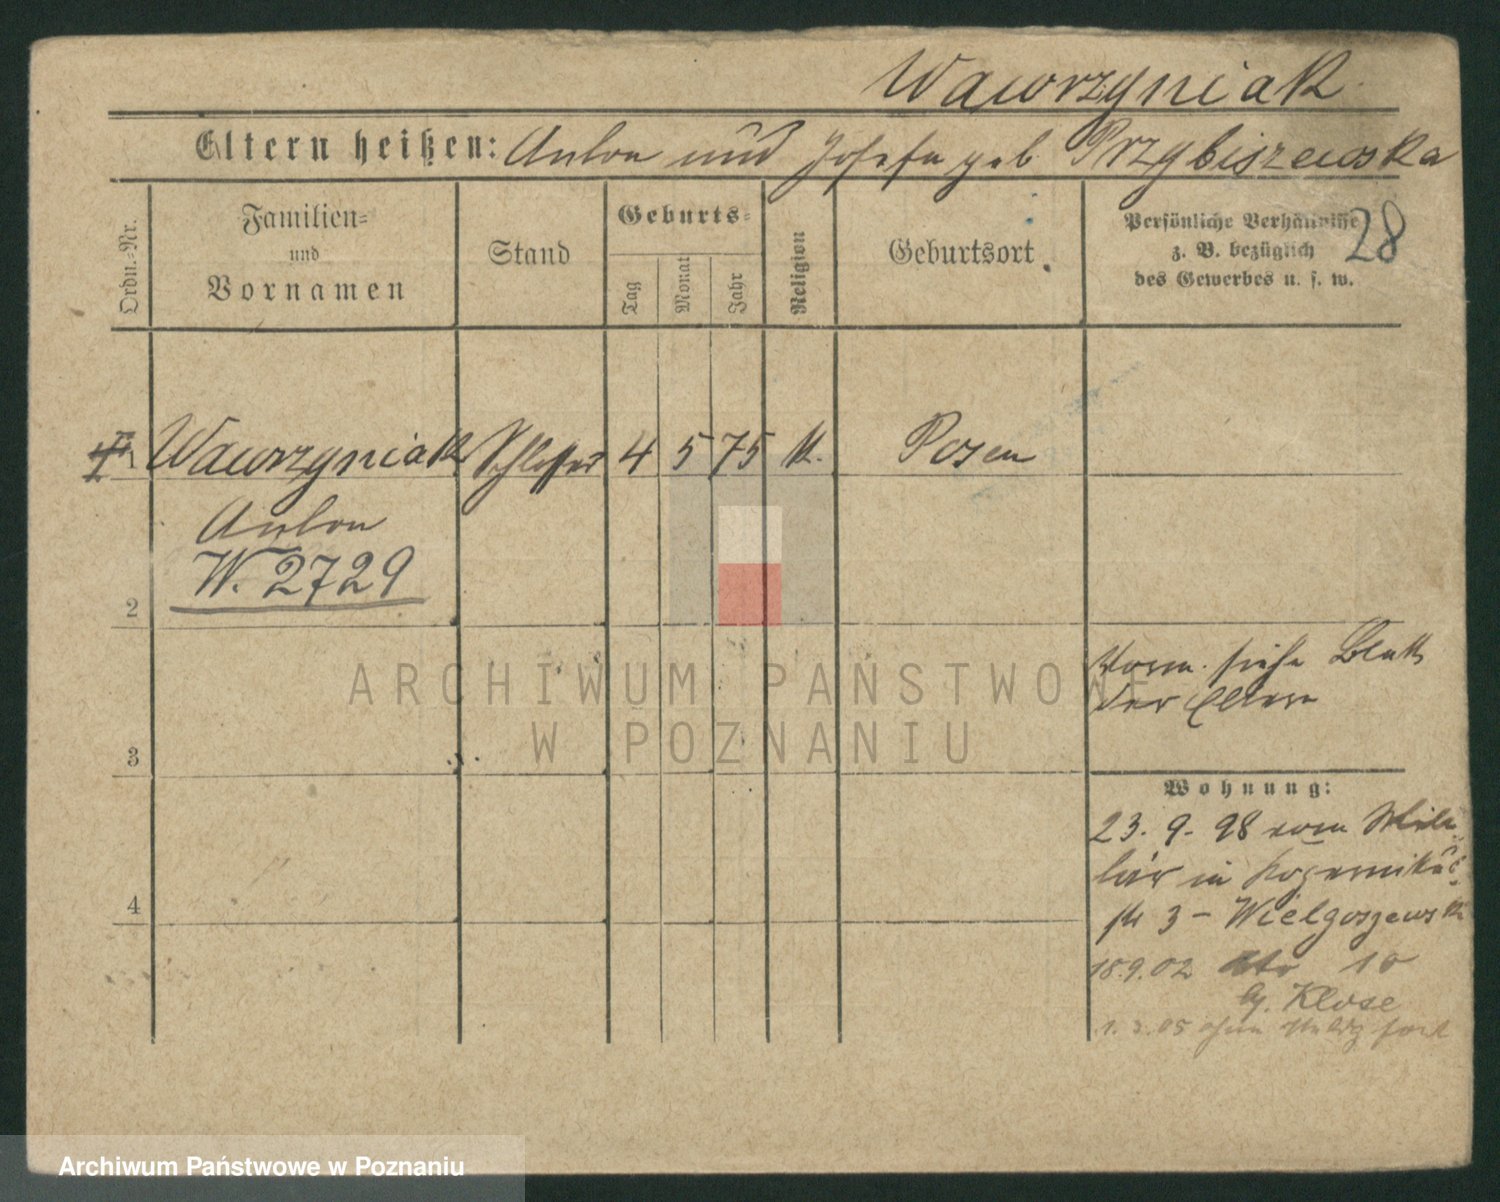 Wawrzyniak
Eltern heißen: Anton und Josefa geb. Przybiszewska
Ordn.-Nr.
Familien-
und
Vornamen
Stand
Geburts-
Tag
Monat
Jahr
Religion
Geburtsort
Persönliche Verhältnisse
z. B. bezüglich
des Gewerbes u. s. w.
28
1 Wawrzyniak Schlosser 4 5 75 k. Posen
Anton
W. 2729
2
Vorm. siehe Blatt
der Eltern
3
Wohnung:
23. 9. 98 vom Mili-
tär in
3 - Wielgoszewsk
4
18.9.02 10
b/. Klose
1. 3. 05 ohne Meldg fort
ARCHIWUM PAŃSTWOWE
W POZNANIU
Archiwum Państwowe w Poznaniu